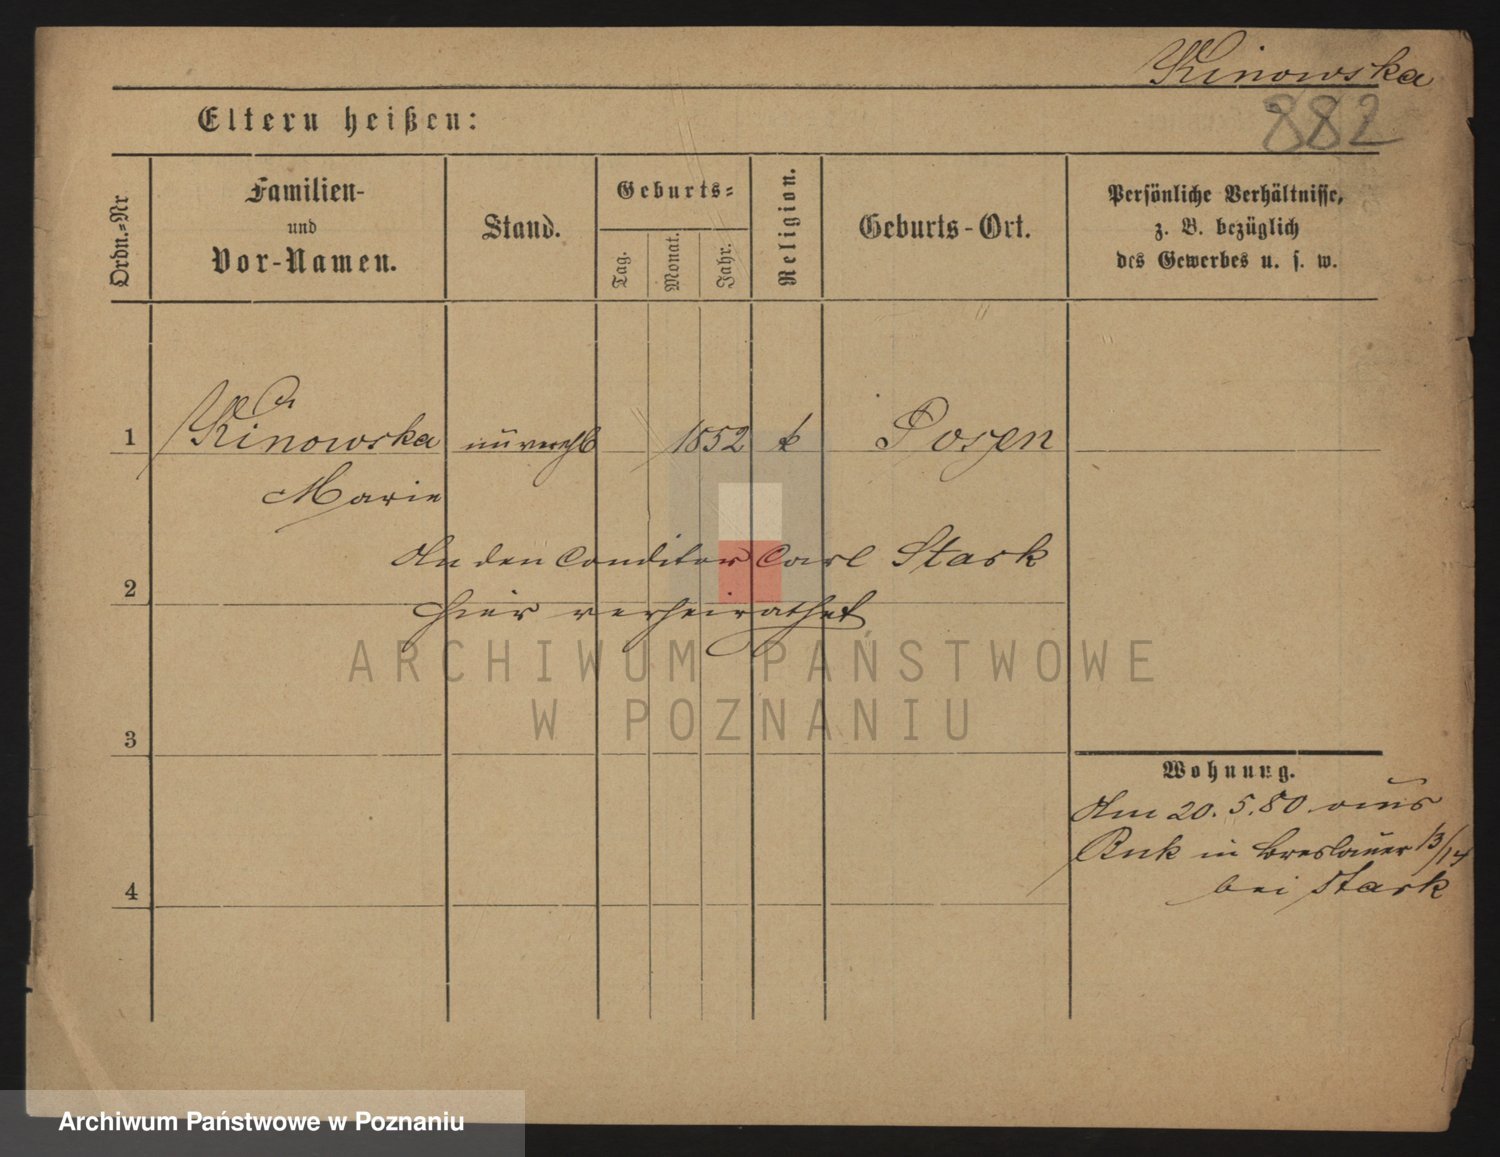 Kinowska
882
Eltern heißen:
Ordn.-Nr
Familien-
und
Vor-Namen.
Stand.
Geburts-
Tag.
Monat.
Jahr.
Religion.
Geburts-Ort.
Persönliche Verhältnisse,
z. B. bezüglich
des Gewerbes u. s. w.
1 Kinowska unverehl 1852 k Posen
Marie
An den Conditor Carl Stark
2
hier verheirathet
ARCHIWUM PAŃSTWOWE
W POZNANIU
3
Wohnung.
Am 20.5.80 aus
in Breslauer 13/14
bei Stark
4
Archiwum Państwowe w Poznaniu